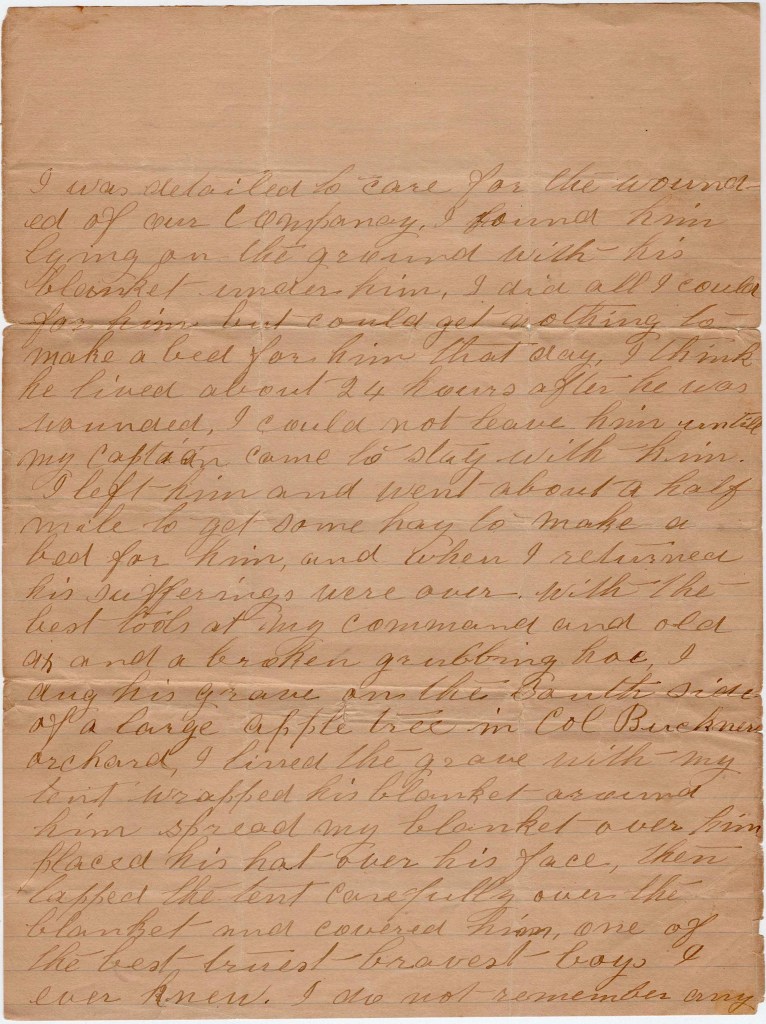 I was detailed to care for the wound-
ed of our Company. I found him
lying on the ground with his
blanket under him, I did all I could
for him but could get nothing to
make a bed for him that day, I think
he lived about 24 hours after he was
wounded, I could not leave him untill
my captain came to stay with him.
I left him and went about a half
mile to get some hay to make a
bed for him, and when I returned
his sufferings were over. With the
best tools at my command and old
ax and a broken grubbing hoe, I
dug his grave on the South side
of a large apple tree in Col Buckners
orchard, I lined the grave with my
tent wrapped his blanket around
him spread my blanket over him
placed his hat over his face, then
lapped the tent carefully over the
blanket and covered him, one of
the best truest bravest boys I
ever knew. I do not remember any